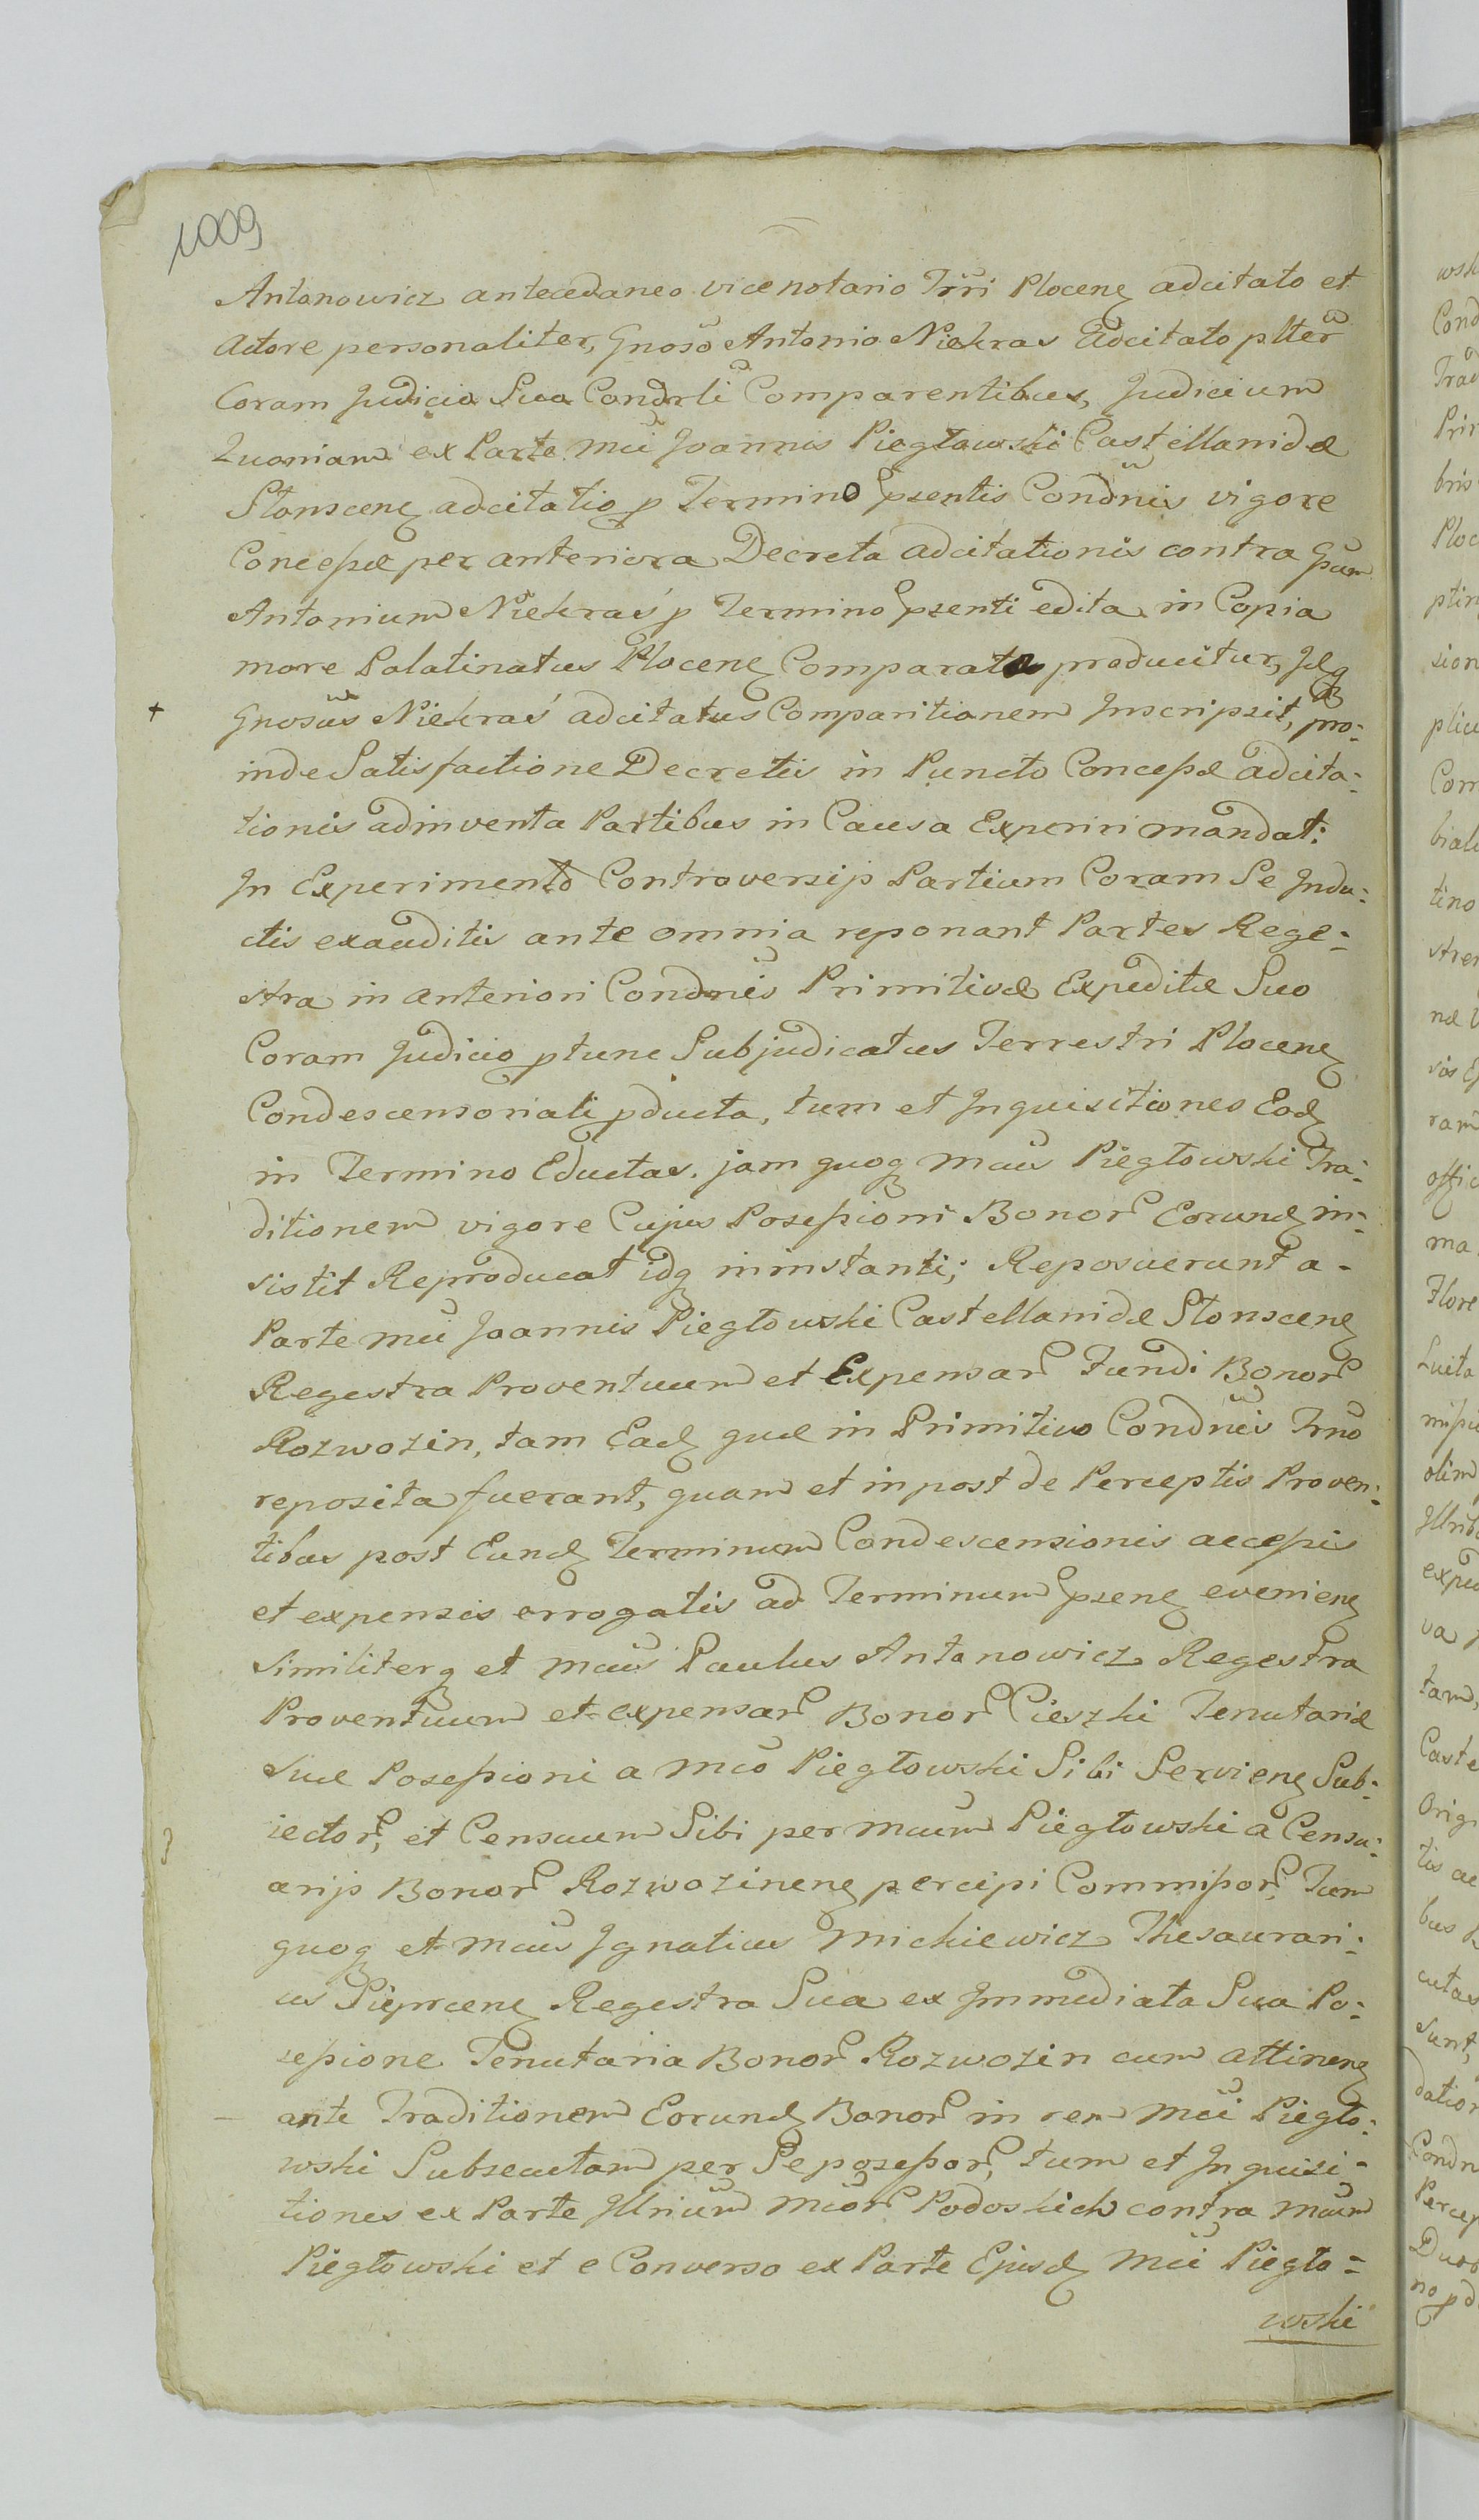 1009
Antonowicz antecedaneo vicenotario Trri Plocen adcitato et
Actore personaliter, Gnoso Antonio Niekras Adcitato plter
Coram Judicio Suo Condrli Comparentibus, Judicium
Quoniam ex Parte Mci Joannis Piegłowski Castellanidæ
Słonscen adcitatio p Termino Psentis Condnis vigore
Concessæ per anteriora Decreta adcitationis contra Gsum
Antonium Niekraś p Termino Psenti edita in Copia
more Palatinatus Plocen Comparata producitur, Idq
+ Gnosus Niekraś adcitatus Comparitionem Inscripsit, pro:
inde Satisfactione Decretis in Puncto Concessæ adcita:
tionis adinventa Partibus in Causa Experiri mandat:
In Experimento Controversijs Partium Coram Se Indu:
ctis exauditis ante omnia reponant Partes Rege:
stra in anteriori Condnis Primitivæ Expeditæ Suo
Coram Judicio ptunc Subjudicatus Terrestri Plocen
Condescensoriali pducta, tum et Inquisitiones Eod
in Termino Eductas. jam quoq Mcus Piegłowski Tra:
ditionem vigore Cujus Possessioni Bonor Eorund in:
sistit Reproducat idq ininstanti; Reposuerunt a-
Parte Mci Joannis Piegłowski Castellanidæ Słonscen
Regestra Proventuum et Expensar Fundi Bonor
Rozwozin, tam Ead quæ in Primitivo Condnis Trno
reposita fuerant, quam et inpost de Perceptis Proven:
tibus post Eund Terminum Condescensionis accessis
et expensis errogatis ad Terminum Psen evenien
Similiterq et Mcus Paulus Antonowicz Regestra
Proventuum et expensar Bonor Cieszki Tenutariæ
Suæ Possessioni a Mco Piegłowski Sibi Servien Sub:
iector, et Censuum Sibi per Mcum Piegłowski a Censu:
arijs Bonor Rozwozinen percipi Commissor, Tum
quoq et Mcus Ignatius Mickiewicz Thesaurari:
us Sieprcen Regestra Sua ex Immediata Sua Po:
sessione Tenutaria Bonor Rozwozin cum attinen
ante Traditionem Eorund Bonor in rem Mci Piegło:
wski Subsecutam per Se possessor, tum et Inquisi:
tiones ex Parte Illrium Mcor Podoskich contra Mcum
Piegłowski et e Converso ex Parte Ejusd Mci Piegło:
wski